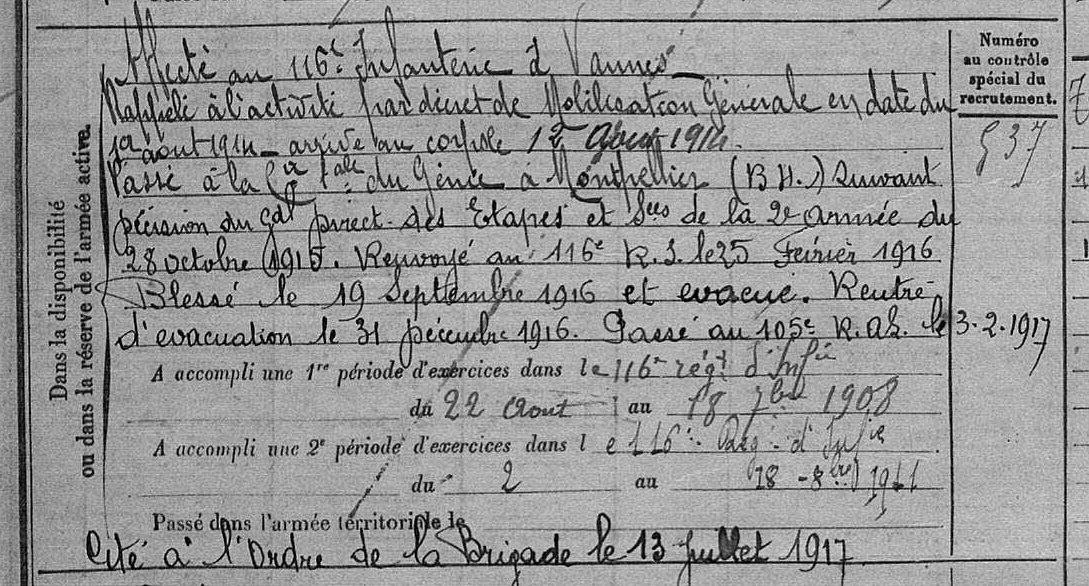 Affecté au 116e Infanterie à Vannes
Rappelé à l'activité par décret de Mobilisation Générale en date du
1er août 1914 - arrivé au corps le 12 Août 1914.
Passé à la du Génie à Montpellier (B H.) suivant
décision du Gal Direct. des Etapes et Sces de la 2e armée du
28 octobre 1915. Renvoyé au 116e R.I. le 25 Février 1916
Blessé le 19 Septembre 1916 et evacué. Rentré
d'evacuation le 31 décembre 1916. Passé au 105e R.a.L. le 3.2.1917
A accompli une 1re période d'exercices dans le 116e régt d'Infie
du 22 Aout au 18 7bre 1908
A accompli une 2e période d'exercices dans le 116e Reg. d'Infie
du 2 au 18 - 8bre 1911
Passé dans l'armée territoriale le
Cité à l'Ordre de la Brigade le 13 juillet 1917
Dans la disponibilité
ou dans la réserve de l'armée active.
Numéro
au contrôle
spécial du
recrutement.
537